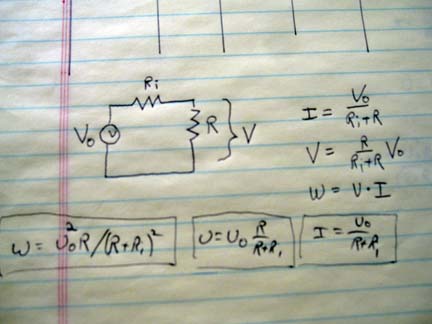 Ri
V₀ V R } V
I = V₀/(Ri+R)
V = R/(Ri+R) V₀
W = V·I
W = V₀²R/(R+R₁)²
V = V₀ R/(R+R₁)
I = V₀/(R+R₁)